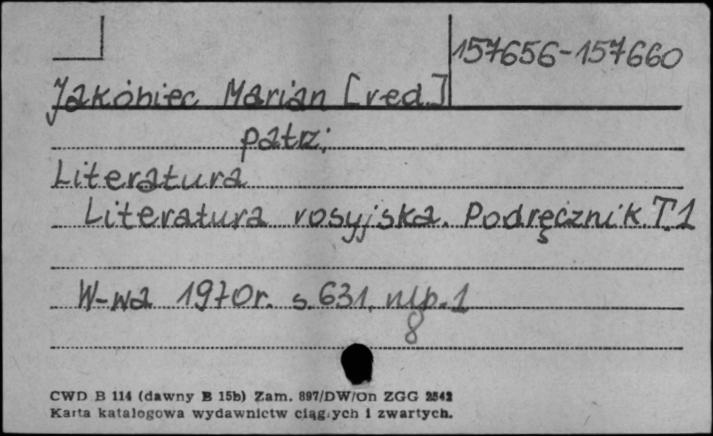 157656-157660
Jakóbiec Marian [red.]
patrz:
Literatura
Literatura rosyjska. Podręcznik T.1
W-wa 1970r. s. 631, nlp. 1
8
CWD B 114 (dawny B 15b) Zam. 897/DW/On ZGG 2542
Karta katalogowa wydawnictw ciągłych i zwartych.